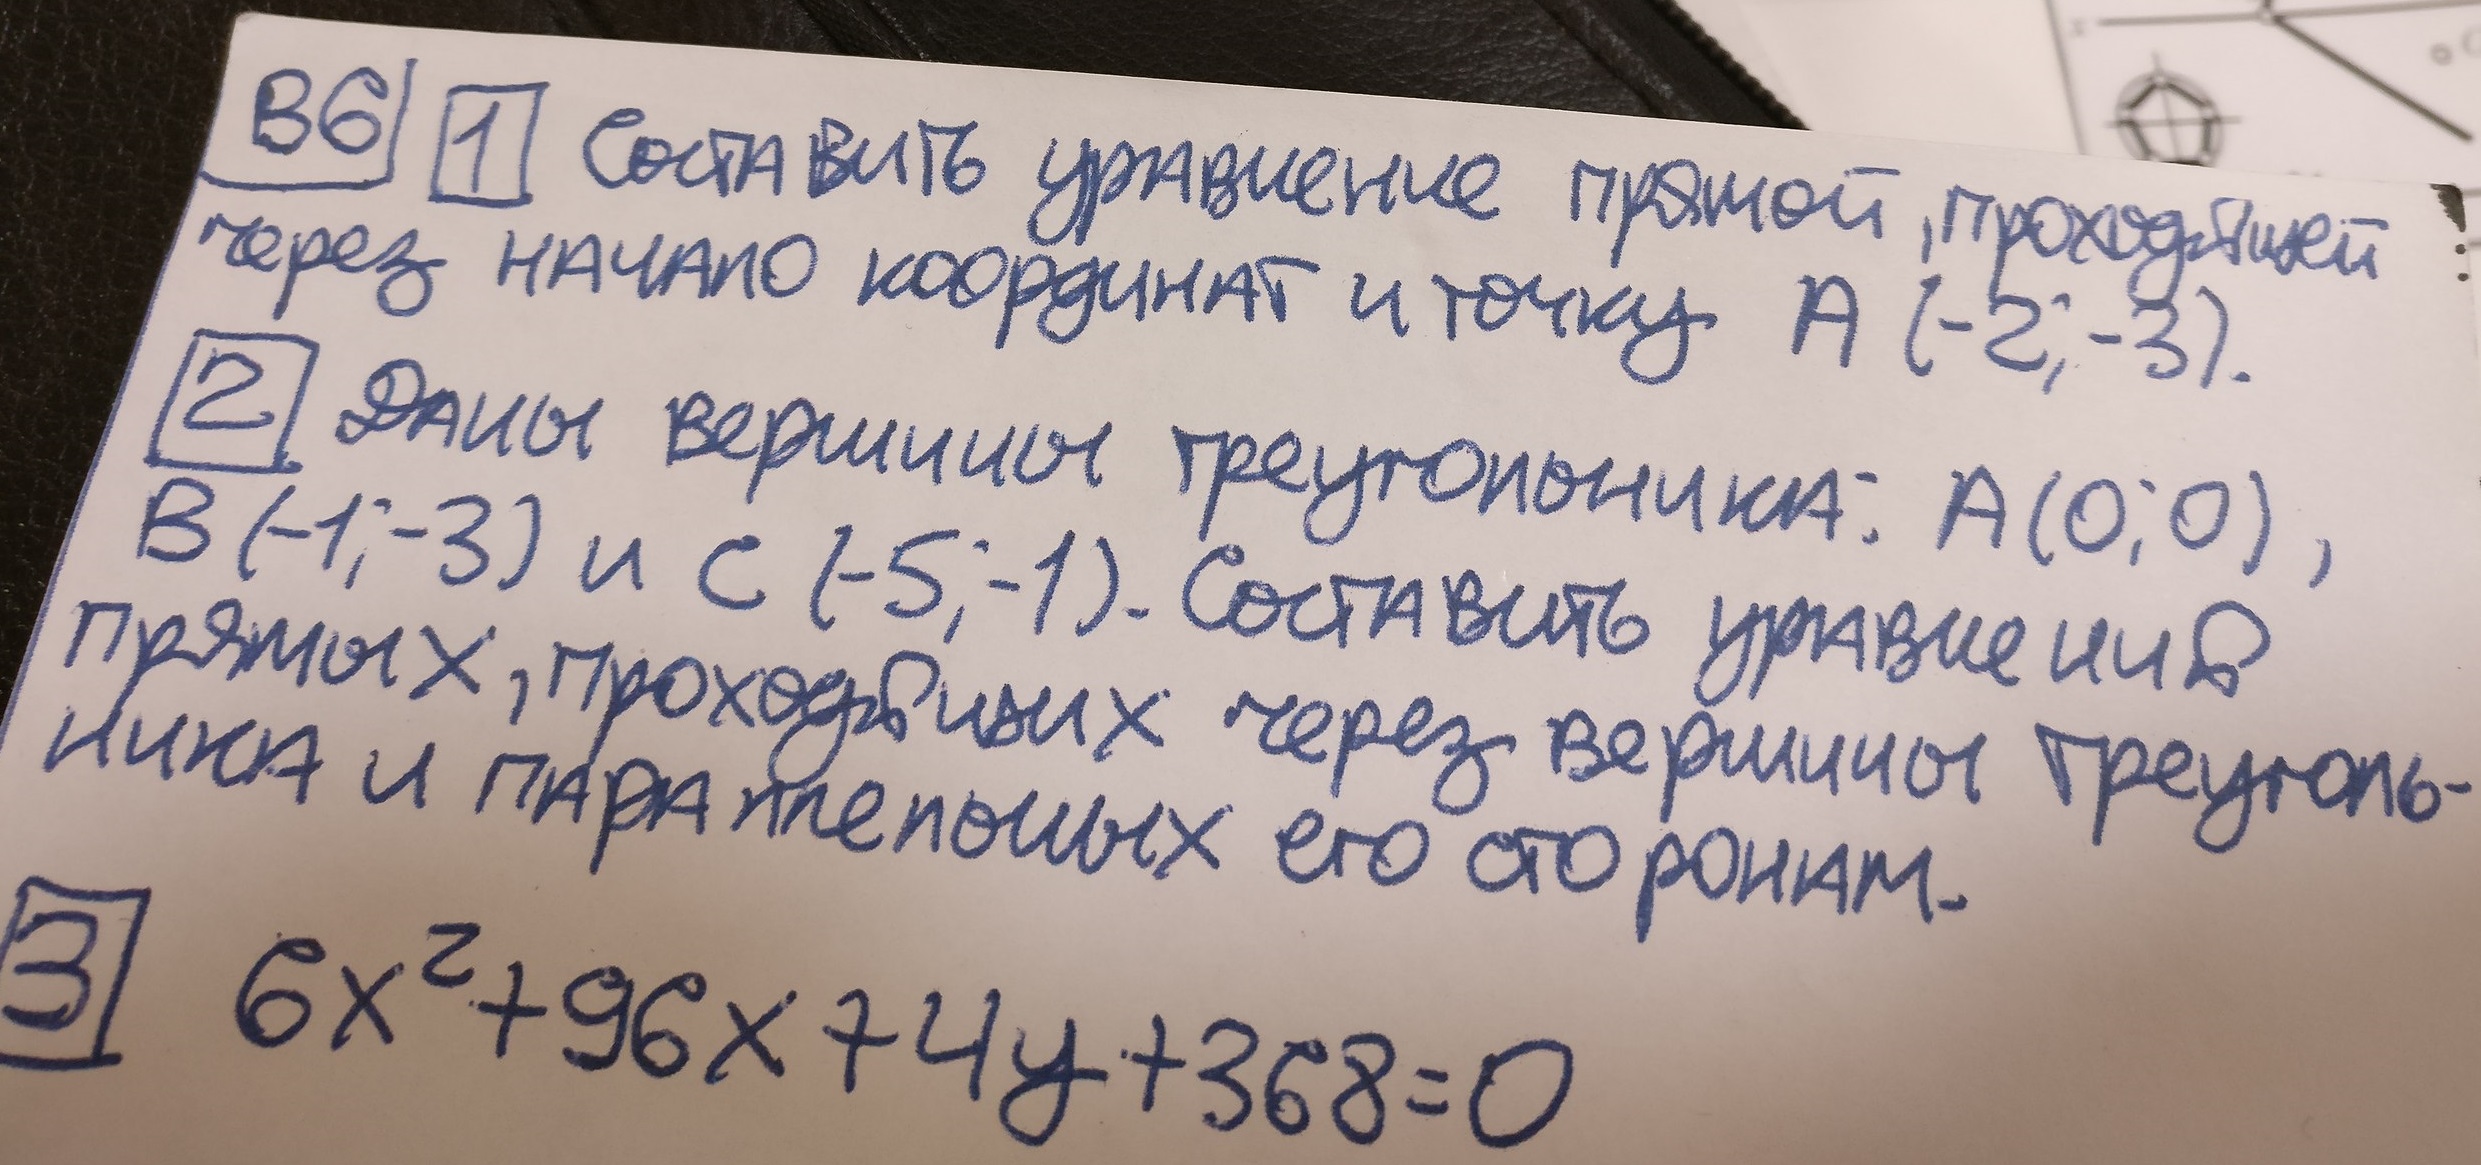 В6 1 Составить уравнение прямой, проходящей
через начало координат и точку А (-2; -3).
2 Даны вершины треугольника: А(0; 0),
В(-1; -3) и С (-5; -1). Составить уравнения
прямых, проходящих через вершины треуголь-
ника и параллельных его сторонам.
3 6x²+96x+4y+368=0